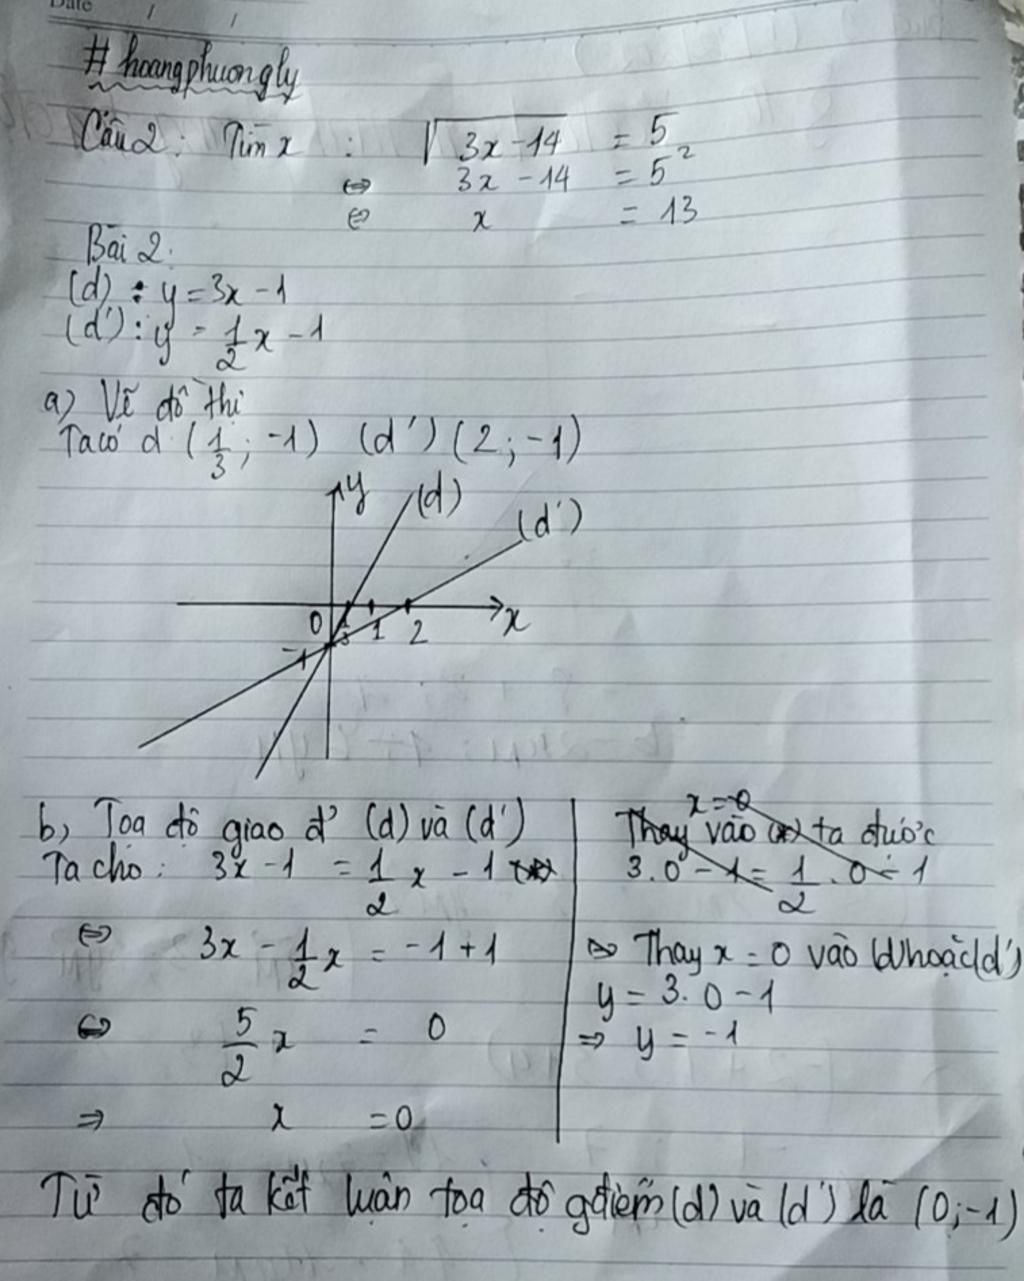 Date / /
# hoangphuongly
Câu 2: Tìm x : √3x - 14 = 5
⇔ 3x - 14 = 5²
⇔ x = 13
Bài 2:
(d) : y = 3x - 1
(d') : y = 1/2 x - 1
a) Vẽ đồ thị
Ta có d (1/3; -1) (d') (2; -1)
y (d)
(d')
0 1/3 1 2 x
-1
b, Tọa độ giao đ' (d) và (d')
Ta cho: 3x - 1 = 1/2 x - 1 (*)
⇔ 3x - 1/2 x = -1 + 1
⇔ 5/2 x = 0
⇒ x = 0
x = 0
Thay vào (*) ta được
3.0 - 1 = 1/2 . 0 - 1
⇒ Thay x = 0 vào (d) hoặc (d')
y = 3.0 - 1
⇒ y = -1
Từ đó ta kết luận tọa độ gđiểm (d) và (d') là (0; -1)